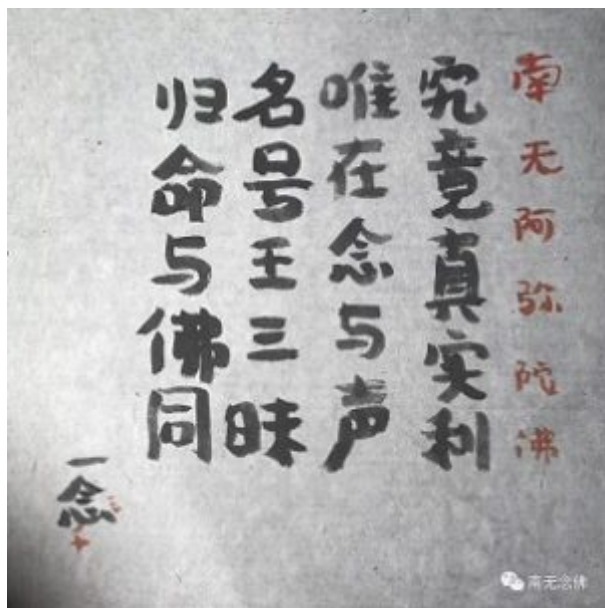 南无阿弥陀佛
究竟真实利
唯在念与声
名号王三昧
归命与佛同
一念
南无念佛